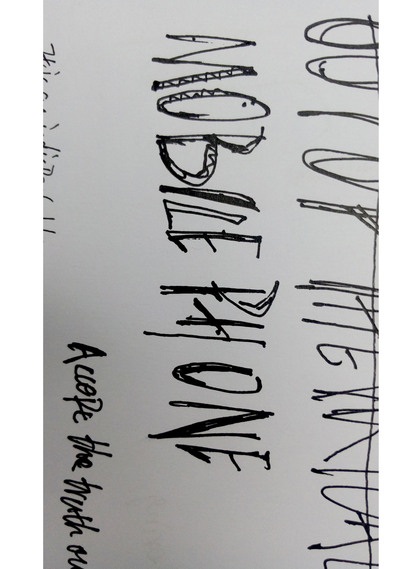 OUT OF THE VIRTUAL
MOBILE PHONE
Accept the truth